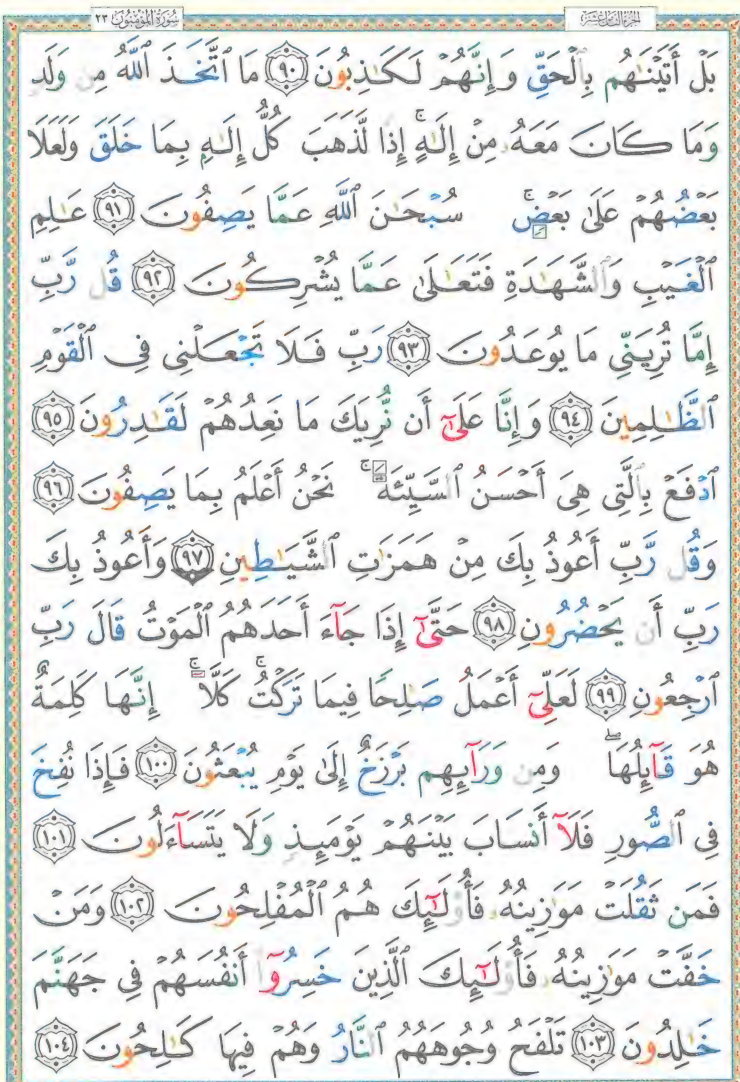 سُورَةُ المُؤْمِنُون ٢٣
الجزء الثامن عشر
بَلْ أَتَيْنَٰهُم بِٱلْحَقِّ وَإِنَّهُمْ لَكَٰذِبُونَ ٩٠ مَا ٱتَّخَذَ ٱللَّهُ مِن وَلَدٍ
وَمَا كَانَ مَعَهُۥ مِنْ إِلَٰهٍۚ إِذًا لَّذَهَبَ كُلُّ إِلَٰهٍۭ بِمَا خَلَقَ وَلَعَلَا
بَعْضُهُمْ عَلَىٰ بَعْضٍۚ سُبْحَٰنَ ٱللَّهِ عَمَّا يَصِفُونَ ٩١ عَٰلِمِ
ٱلْغَيْبِ وَٱلشَّهَٰدَةِ فَتَعَٰلَىٰ عَمَّا يُشْرِكُونَ ٩٢ قُل رَّبِّ
إِمَّا تُرِيَنِّى مَا يُوعَدُونَ ٩٣ رَبِّ فَلَا تَجْعَلْنِى فِى ٱلْقَوْمِ
ٱلظَّٰلِمِينَ ٩٤ وَإِنَّا عَلَىٰٓ أَن نُّرِيَكَ مَا نَعِدُهُمْ لَقَٰدِرُونَ ٩٥
ٱدْفَعْ بِٱلَّتِى هِىَ أَحْسَنُ ٱلسَّيِّئَةَۚ نَحْنُ أَعْلَمُ بِمَا يَصِفُونَ ٩٦
وَقُل رَّبِّ أَعُوذُ بِكَ مِنْ هَمَزَٰتِ ٱلشَّيَٰطِينِ ٩٧ وَأَعُوذُ بِكَ
رَبِّ أَن يَحْضُرُونِ ٩٨ حَتَّىٰٓ إِذَا جَآءَ أَحَدَهُمُ ٱلْمَوْتُ قَالَ رَبِّ
ٱرْجِعُونِ ٩٩ لَعَلِّىٓ أَعْمَلُ صَٰلِحًا فِيمَا تَرَكْتُۚ كَلَّآۚ إِنَّهَا كَلِمَةٌ
هُوَ قَآئِلُهَاۖ وَمِن وَرَآئِهِم بَرْزَخٌ إِلَىٰ يَوْمِ يُبْعَثُونَ ١٠٠ فَإِذَا نُفِخَ
فِى ٱلصُّورِ فَلَآ أَنسَابَ بَيْنَهُمْ يَوْمَئِذٍ وَلَا يَتَسَآءَلُونَ ١٠١
فَمَن ثَقُلَتْ مَوَٰزِينُهُۥ فَأُو۟لَٰٓئِكَ هُمُ ٱلْمُفْلِحُونَ ١٠٢ وَمَنْ
خَفَّتْ مَوَٰزِينُهُۥ فَأُو۟لَٰٓئِكَ ٱلَّذِينَ خَسِرُوٓا۟ أَنفُسَهُمْ فِى جَهَنَّمَ
خَٰلِدُونَ ١٠٣ تَلْفَحُ وُجُوهَهُمُ ٱلنَّارُ وَهُمْ فِيهَا كَٰلِحُونَ ١٠٤